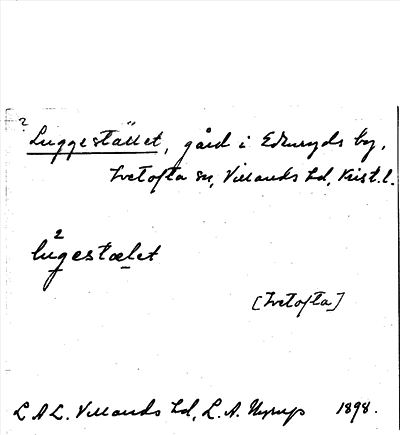 ? Luggestället, gård i Edenryds by,
Ivetofta sn, Villands hd, Krist.l.
2
lugestælet
[Ivetofta]
L A L. Villands hd, L. A. Nyrup 1898.